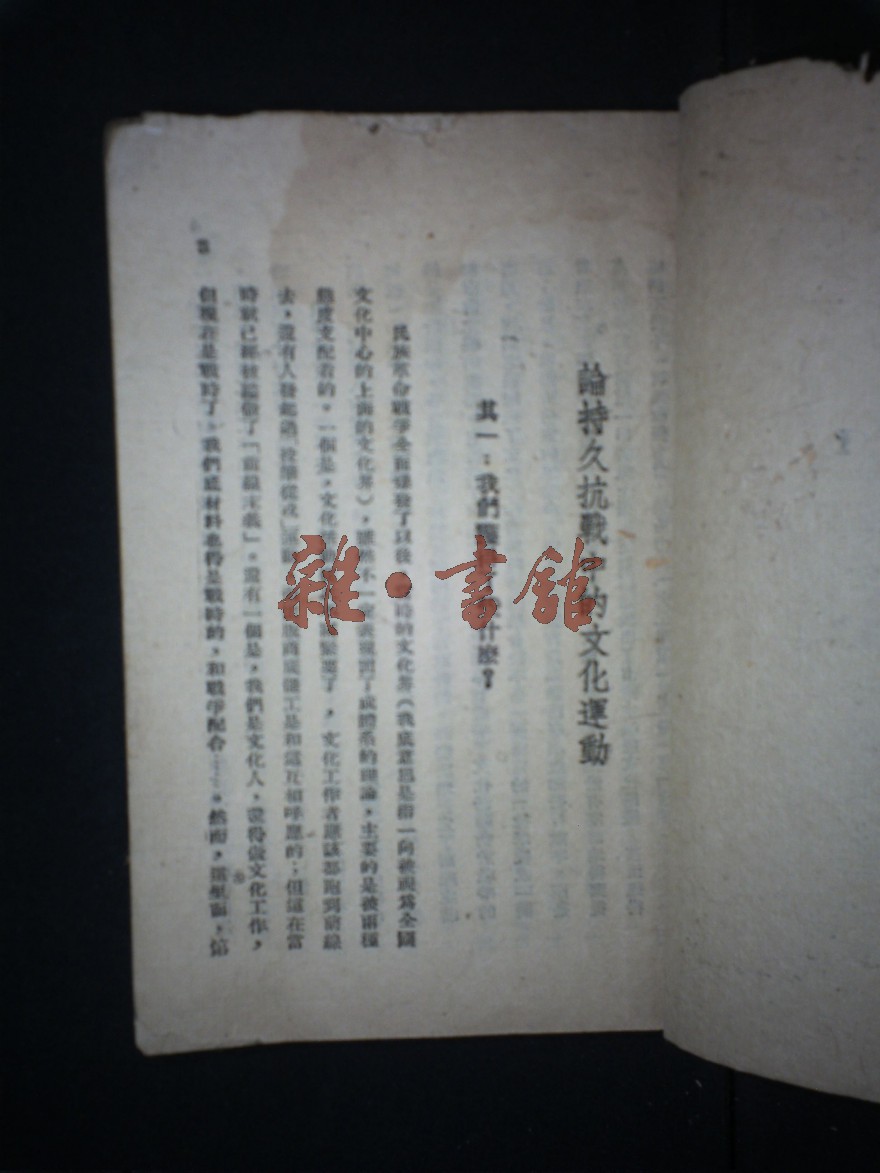 論持久抗戰中的文化運動
其一：我們 什麼？
民族革命戰爭全面爆發了以後， 時的文化界（我底意思是指一向被視爲全國
文化中心的上海的文化界），雖然不一 表現了 成體系的理論，主要的是被兩種
態度支配着的。一個是，文化 了，文化工作者應該都跑到前線
去，還有人發起過「投筆從戎」 商底儲工是和這互相呼應的；但這在當
時就已經被 做了「前線主義」。還有一個是，我們是文化人，當得做文化工作，
但現在是戰時了，我們底材料也得是戰時的，和戰爭配合……。然而，
雜·書館